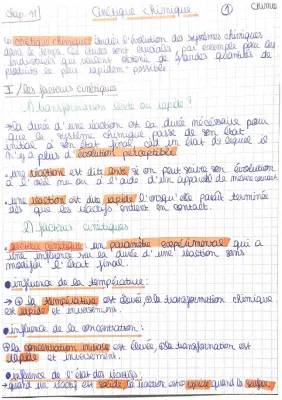 Chap. 11 Cinétique chimique ① Chimie
La cinétique chimique étudie l'évolution des systèmes chimiques
dans le temps. Ces études sont cruciales par exemple pour les
industriels qui veulent obtenir de grandes quantités de
produits le plus rapidement possible
I / Les facteurs cinétiques
1) transformation lente ou rapide ?
→ la durée d'une réaction est la durée nécessaire pour
que le système chimique passe de son état
initial à son état final, càd un état de lequel il
n'y a plus d'évolution perceptible.
• une réaction est dit lente si on peut suivre son évolution
à l'œil nu ou à l'aide d'un appareil de mesure
• une réaction est dite rapide lorsqu'elle paraît terminée
dès que les réactifs entrent en contact.
2) facteurs cinétiques
facteur cinétique : un paramètre expérimental qui a
une influence sur la durée d'une réaction sans
modifier l'état final.
• influence de la température :
→ ⊕ la température est élevée, ⊕ la transformation chimique
est rapide et inversement.
• influence de la concentration :
⊕ la concentration initiale est élevée, ⊕ la transformation est
rapide et inversement.
• influence de l'état des réactifs :
→ quand un réactif est solide la réaction est rapide quand la